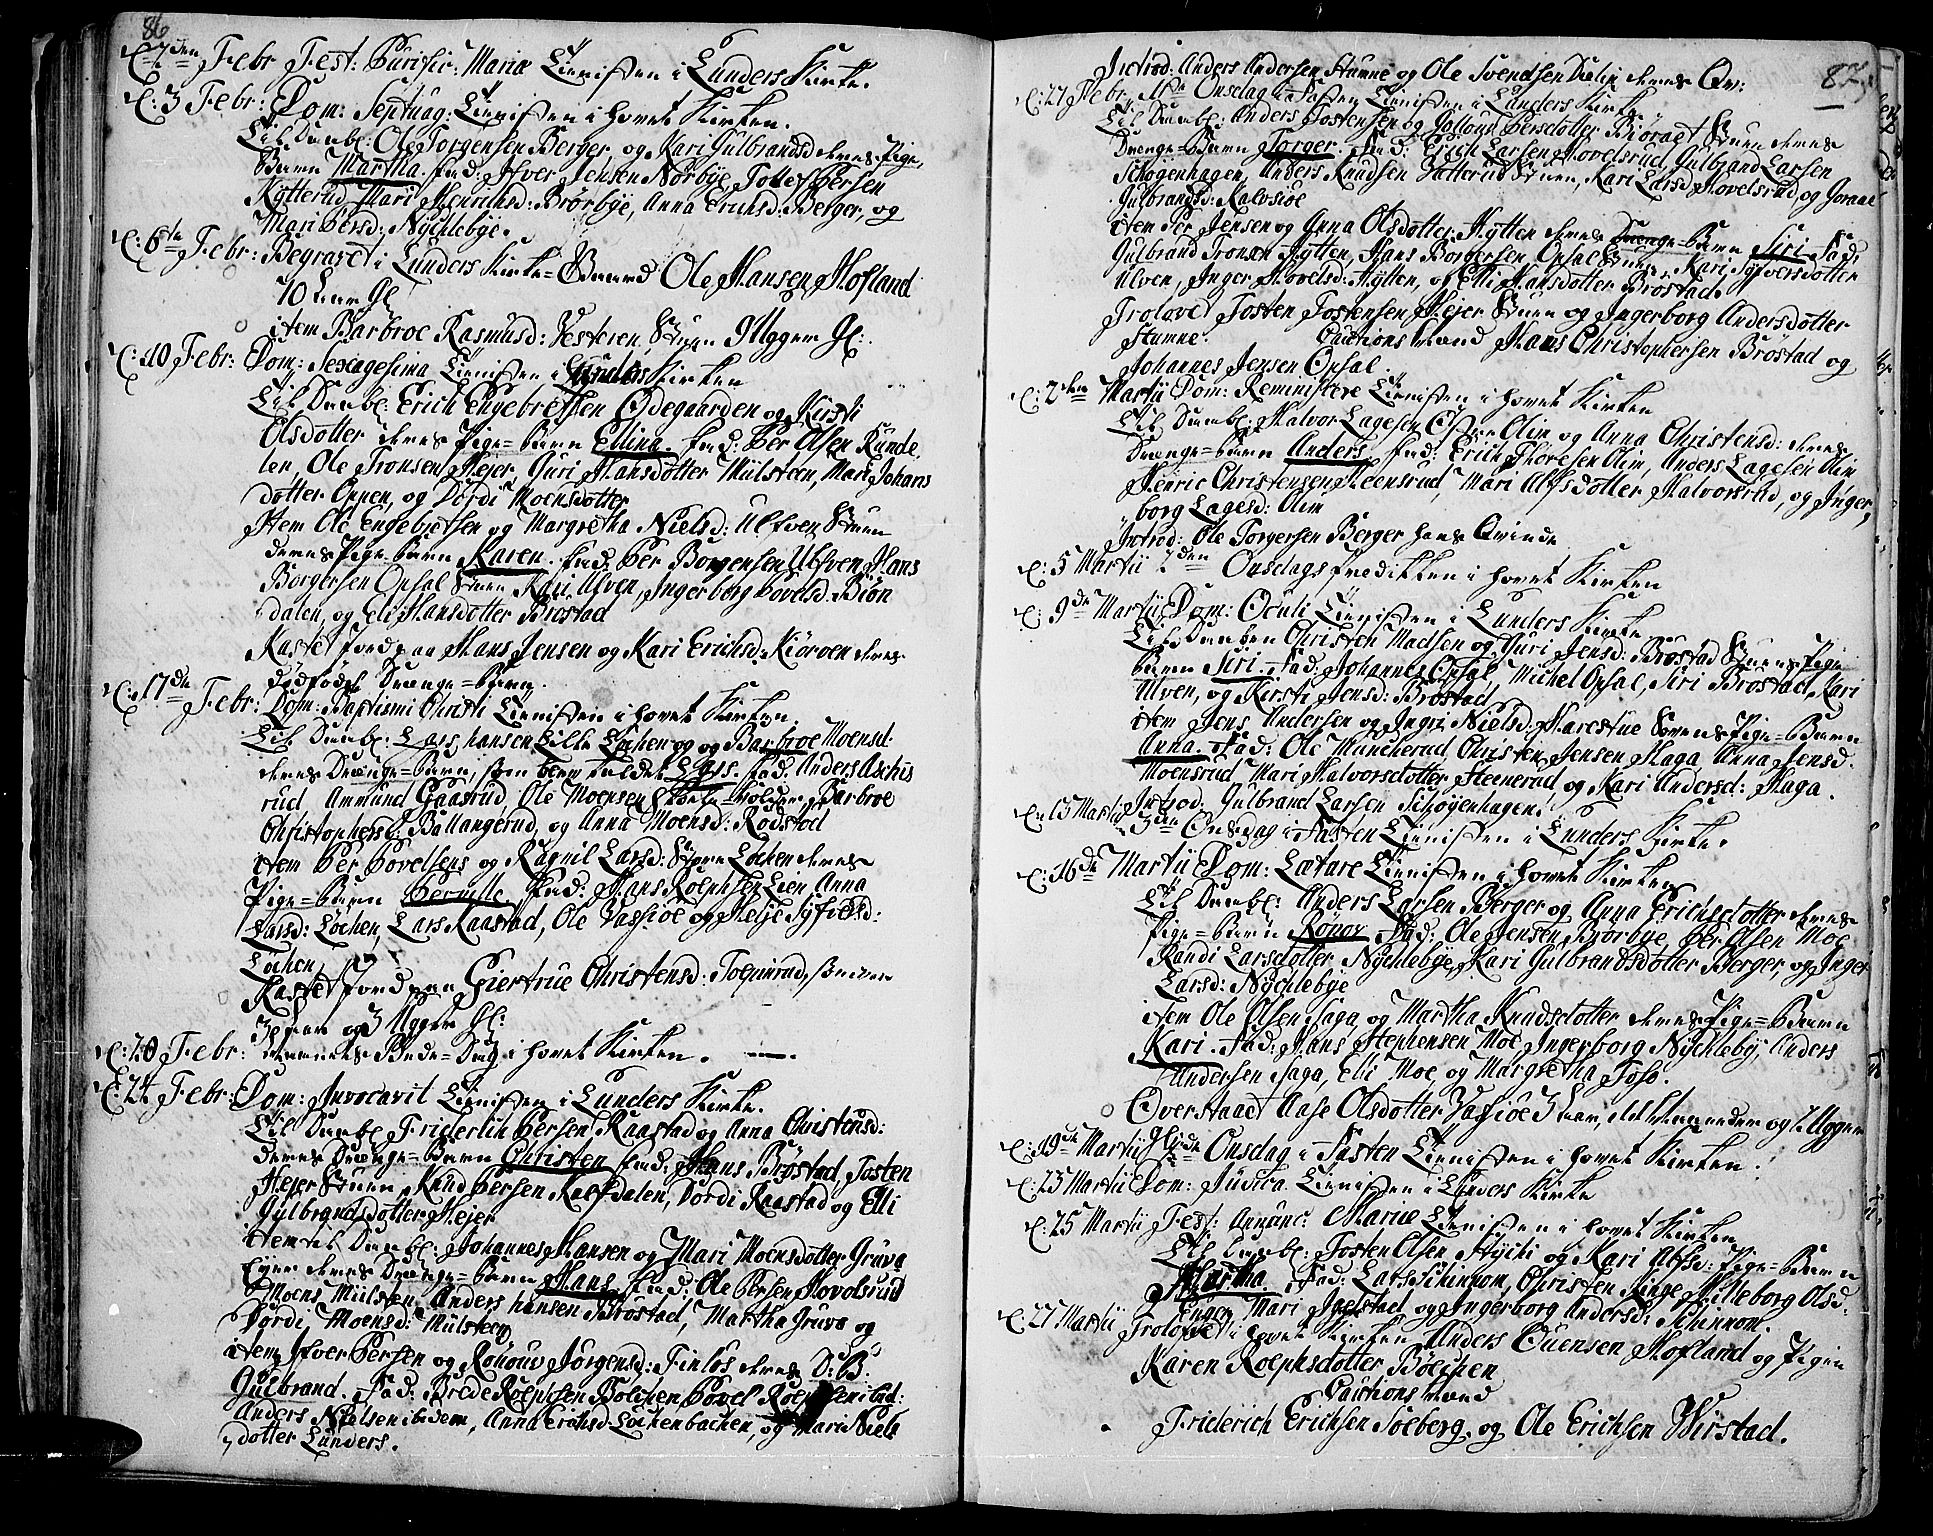 86
d: 2den Febr. Fest: Purific: Mariæ Tienisten i Lunders Kirke.
d: 3 Febr: Dom: Septuag: Tienisten i Hovet Kirken.
Til Daabs: Ole Torgersen Berger, og Kari Gulbrandsd deres Pige
Barn Martha. Fad: Iver Jensen Nörbye, Tollef Persen
Kytterud, Mari Henrichsd: Brörbye, Anna Erichsd: Berger, og
Mari Persd: Nychlebye.
d: 6te Febr: Begravet i Lunders Kirke-Gaard Ole Hansen Hofland
70 Aar Gl
item Barbroe Rasmusd: Vesteren, 9 Uger Gl:
d: 10 Febr: Dom: Sexagesima Tienisten i Lunders Kirken
Til Daabs: Erich Engebretsen Ödegaarden og Kirsti
Olsdotter deres Pige-Barn Ellina. Fad: Per Olsen Runde
len, Ole Tronsen Hejer, Guri Hansdotter Mülsteen, Mari Johans
dotter Oppen, og Dordi Moensdotter
Item Ole Engebretsen og Margretha Nielsd: Ulfven
deres Pige-Barn Karen. Fad: Per Borgersen Ulfven, Hans
Borgersen Opsal Kari Ulven, Ingerborg Povelsd: Biön
dalen, og Eli Hansdotter Bröstad
Kastet Jord paa Hans Jensen og Kari Erichsd: Kiörven deres
dödfödte Drenge-Barn.
d: 17de Febr: Dom: Baptismi Christi Tienisten i Hovet Kirken.
Til Daabs: Lars Hansen Lille Löchen og og Barbroe Moensd:
deres Drænge-Barn, som blev kaldet Lars. Fad: Anders Aschis
rud, Ammund Gaasrud, Ole Moensen Barbroe
Christophersd: Ballangerud, og Anna Moensd: Rodstod
item Per Povelsens og Ragnil Larsd: Store Löchen deres
Pige-Barn Pernille. Fad: Hans Roelphsen Lien, Anna
Larsd: Löchen, Lars Raastad, Ole Vassiöe og Helje Syfversd:
Löchen
Kastet Jord paa Giertrue Christensd: Toenrud,
og 3 Uger gl:
d: 20 Febr: Bede-Dag i Hovet Kirken.
d: 24 Febr: Dom: Invocavit Tienisten i Lunders Kirke.
Til Daabs Friderich Persen Raastad og Anna Christensd:
deres Drænge-Barn Christen Fad: Hans Bröstad, Tosten
Hejer Knud Persen Kalfdalen, Dordi Raastad og Elli
Gulbrandsdotter Hejer
item til Daabs: Johannes Hansen og Mari Moensdotter Gruva
Ejer deres Drænge-Barn Hans Fad: Ole Persen Hovelsrud
Moens Mülsten, Anders Hansen Bröstad, Martha Gruva og
Dordi Moensd: Mülsteen
item Iver Persen og Rönnouv Jörgensd: Finlös deres D: B:
Gulbrand. Fad: Brede Roelphsen Bölchen, Povel Roelphsen ibid:
Anders Nielsen ibidem, Anna Erichsd: Löchenbachen, og Mari Niels
dotter Lunders.
87
Introd: Anders Andersen Stumne og Ole Svendsen deres Qv:
d: 27 Febr. 1ste Onsdag i Fasten Tienisten i Lunders Kirke.
Til Daabs: Anders Tostensen og Jollous Persdotter deres
Drænge-Barn Torger. Fad: Erich Larsen Hovelsrud, Gulbrand Larsen
Schögenhagen, Anders Knudsen Kari Larsd Hovelsrud, og Goraae
Gulbrandsd: Kalvsiöe
item Per Jensen og Anna Olsdotter Hytten deres Drænge-Barn Siri Fad:
Gulbrand Tronsen Hytten, Hans Borgersen Opsal Kari Syfversdotter
Ulven, Inger Hovelsd: Hytten, og Elli Hansdotter Bröstad.
Trolovet Tosten Tostensen Hejer og Ingerborg Andersdotter
Stumne. Cautions Mænd Hans Christophersen Bröstad og
Johannes Jensen Opsal.
d: 2den Martii Dom: Reminiscere Tienisten i Hovet Kirken
Til Daabs: Halvor Lagesen Olim og Anna Christensd: deres
Drænge-Barn Anders. Fad: Erich Theresen Olim, Anders Lagesen Olim
Henric Christensen Heensrud, Mari Alfsdotter Halvorsrud, og Inger
borg Lagesd: Olim
Introd: Ole Torgersen Berger hans Qvinde
d: 5 Martii 2den Onsdags Prediken i Hovet Kirken
d: 9de Martii Dom: Oculi Tienisten i Lunders Kirke
Til Daaben Christen Madsen og Guri Jensd: Bröstad Pige
Barn Siri. Fad: Johannes Opsal, Michel Opsal, Siri Bröstad, Kari
Ulven, og Kirsti Jensd: Bröstad
item Jens Andersen og Ingri Nielsd: Harestue deres Pige-Barn
Anna. Fad: Ole Muncherud, Christen Jensen Haga, Anna Jensd:
Moensrud, Mari Halvorsdotter Steenerud og Kari Andersd: Haga.
Introd: Gulbrand Larsen Schögenhagen.
d: 13 Martii 3den Onsdag i Fasten Tienisten i Lunders Kirke.
d: 16de Martii Dom: Lætare Tienisten i Hovet Kirken
Til Daabs: Anders Larsen Berger og Anna Erichsdotter deres
Pige-Barn Rönov Fad: Ole Jensen Brörbye, Per Olsen Moe
Randi Larsdotter Nychlebye, Kari Gulbrandsdotter Berger, og Inger
Larsd: Nychlebye
item Ole Olsen Haga og Martha Knudsdotter deres Pige-Barn
Kari. Fad: Hans Stephensen Moe, Ingerborg Nychleby, Anders
Andersen Haga, Eli Moe, og Margretha Toso.
Overstaaet Aase Olsdotter Vassiöe 3 Aar, Maaneder og 2 Uger
d: 19de Martii 4de Onsdag i Fasten Tienisten i Hovet Kirken.
d: 23 Martii Dom: Judica Tienisten i Lunders Kirke
d: 25 Martii Fest: Annunc: Mariæ Tienisten i Hovet Kirken
Til Daabs: Tosten Olsen og Kari Alfsd: Pige-Barn
Martha. Fad: Lars Schinnom, Christen Ringe, Hilleborg Olsd:
Enger, Mari Jvelstad, og Ingerborg Andersd: Schinnom.
d: 27 Martii Trolovet i Hovet Kirken Anders Evensen Hofland og Pigen
Karen Roelphsdotter Bölchen
Cautions Mænd
Friderich Erichsen Soeberg, og Ole Erichsen Wirstad.